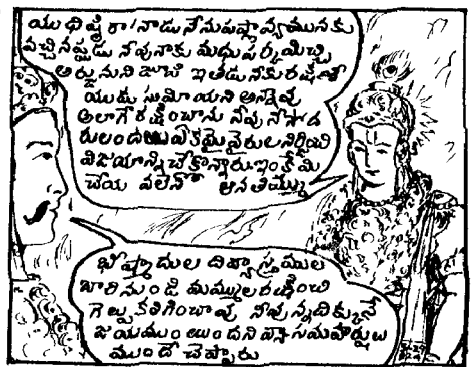 యుధిష్ఠిరా! నాడు నేనుపప్లావ్యమునకు
వచ్చినప్పుడు నీవునాకు మధుపర్కమిచ్చి
అర్జునుని జూపి ఇతడునీకురక్షణీ
యుడు సుమా యని అన్నావు
అలాగే రక్షించాను నీవు నీసోద
రులందరు ఏకమై వైరులనిర్జించి
విజయాన్ని చేకొన్నారు. ఇంకేమి
చేయ వలెనో ఆనతిమ్ము
భీష్మాదుల దివ్యాస్త్రముల
బారినుండి మమ్ముల రక్షించి
గెల్పు కలిగించావు నీవున్నదిక్కునే
జయముంటుందని వ్యాసమహర్షులు
ముందే చెప్పారు